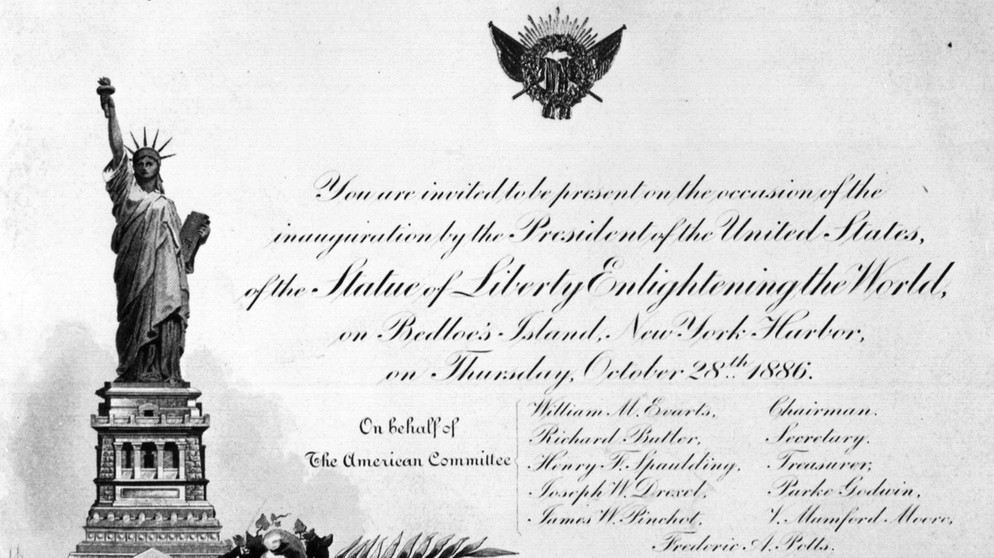 You are invited to be present on the occasion of the
inauguration by the President of the United States,
of the Statue of Liberty Enlightening the World,
on Bedloe's Island, New York Harbor,
on Thursday, October 28th 1886.
On behalf of
The American Committee
William M. Evarts, Chairman.
Richard Butler, Secretary.
Henry F. Spaulding, Treasurer,
Joseph W. Drexel, Parke Godwin,
James W. Pinchot, V. Mumford Moore,
Frederic A. Potts.